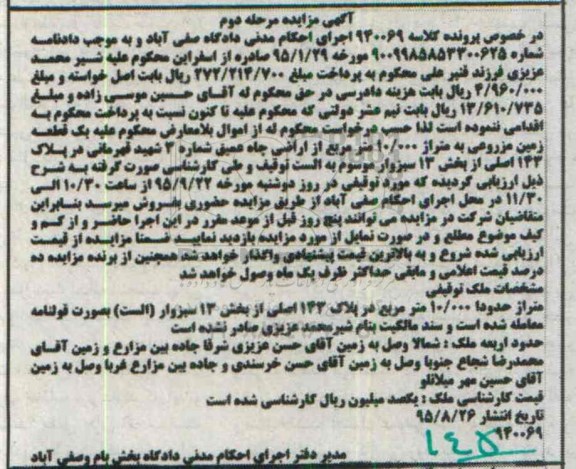 آگهی مزایده مرحله دوم
در خصوص پرونده کلاسه ۹۴۰۰۶۹ اجرای احکام مدنی دادگاه صفی آباد و به موجب دادنامه
شماره ۹۰۰۹۹۸۵۸۵۳۳۰۰۶۲۵ مورخه ۹۵/۱/۲۹ صادره از اسفراین محکوم علیه شیر محمد
عزیزی فرزند قنبر علی محکوم به پرداخت مبلغ ۲۷۲/۲۱۴/۷۰۰ ریال بابت اصل خواسته و مبلغ
۴/۹۶۰/۰۰۰ ریال بابت هزینه دادرسی در حق محکوم له آقای حسین موسی زاده و مبلغ
۱۳/۶۱۰/۷۳۵ ریال بابت نیم عشر دولتی که محکوم علیه تا کنون نسبت به پرداخت محکوم به
اقدامی ننموده است لذا حسب درخواست محکوم له از اموال بلامعارض محکوم علیه یک قطعه
زمین مزروعی به متراژ ۱۰/۰۰۰ متر مربع از اراضی چاه عمیق شماره ۲ شهید قهرمانی در پلاک
۱۴۳ اصلی از بخش ۱۳ سبزوار موسوم به الست توقیف و طی کارشناسی صورت گرفته به شرح
ذیل ارزیابی گردیده که مورد توقیفی در روز دوشنبه مورخه ۹۵/۹/۲۲ از ساعت ۱۰/۳۰ الی
۱۱/۳۰ در محل اجرای احکام صفی آباد از طریق مزایده حضوری بفروش میرسد بنابراین
متقاضیان شرکت در مزایده می توانند پنج روز قبل از موعد مقرر در این اجرا حاضر و از کم و
کیف موضوع مطلع و در صورت تمایل از مورد مزایده بازدید نمایند ضمنا مزایده از قیمت
ارزیابی شده شروع و به بالاترین قیمت پیشنهادی واگذار خواهد شد همچنین از برنده مزایده ده
درصد قیمت اعلامی و مابقی حداکثر ظرف یک ماه وصول خواهد شد
مشخصات ملک توقیفی
متراژ حدودا ۱۰/۰۰۰ متر مربع در پلاک ۱۴۳ اصلی از بخش ۱۳ سبزوار (الست) بصورت قولنامه
معامله شده است و سند مالکیت بنام شیرمحمد عزیزی صادر نشده است
حدود اربعه ملک : شمالا وصل به زمین آقای حسن عزیزی شرقا جاده بین مزارع و زمین آقای
محمدرضا شجاع جنوبا وصل به زمین آقای حسن خرسندی و جاده بین مزارع غربا وصل به زمین
آقای حسین مهر میلانلو
قیمت کارشناسی ملک : یکصد میلیون ریال کارشناسی شده است
تاریخ انتشار ۹۵/۸/۲۶
۹۴۰۰۶۹
۱۴۵
مدیر دفتر اجرای احکام مدنی دادگاه بخش بام وصفی آباد